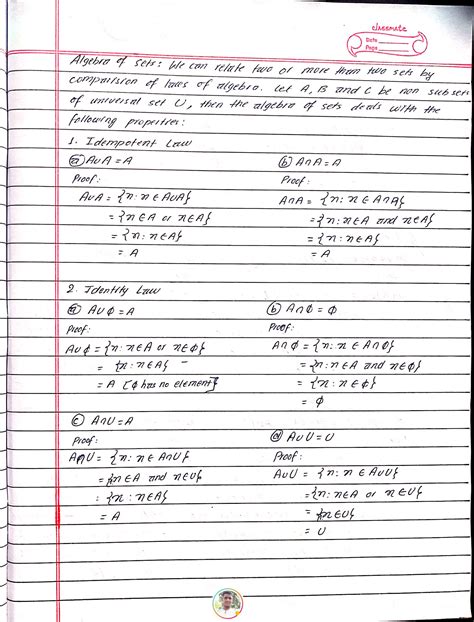 classmate
Date
Page
Algebra of sets: We can relate two or more than two sets by
comparision of laws of algebra. Let A, B and C be non subsets
of universal set U, then the algebra of sets deals with the
following properties:
1. Idempotent Law
(a) A∪A = A
Proof:
A∪A = {n: n ∈ A∪A}
= {n∈A or n∈A}
= {n: n∈A}
= A
(b) A∩A = A
Proof:
A∩A = {n: n ∈ A∩A}
= {n: n∈A and n∈A}
= {n: n∈A}
= A
2. Identity Law
(a) A∪ϕ = A
Proof:
A∪ϕ = {n: n∈A or n∈ϕ}
= {n: n∈A}
= A [ϕ has no element]
(b) A∩ϕ = ϕ
Proof:
A∩ϕ = {n: n ∈ A∩ϕ}
= {n: n∈A and n∈ϕ}
= {n: n∈ϕ}
= ϕ
(c) A∩U = A
Proof:
A∩U = {n: n ∈ A∩U}
= {n∈A and n∈U}
= {n: n∈A}
= A
(d) A∪U = U
Proof:
A∪U = {n: n ∈ A∪U}
= {n: n∈A or n∈U}
= {n∈U}
= U